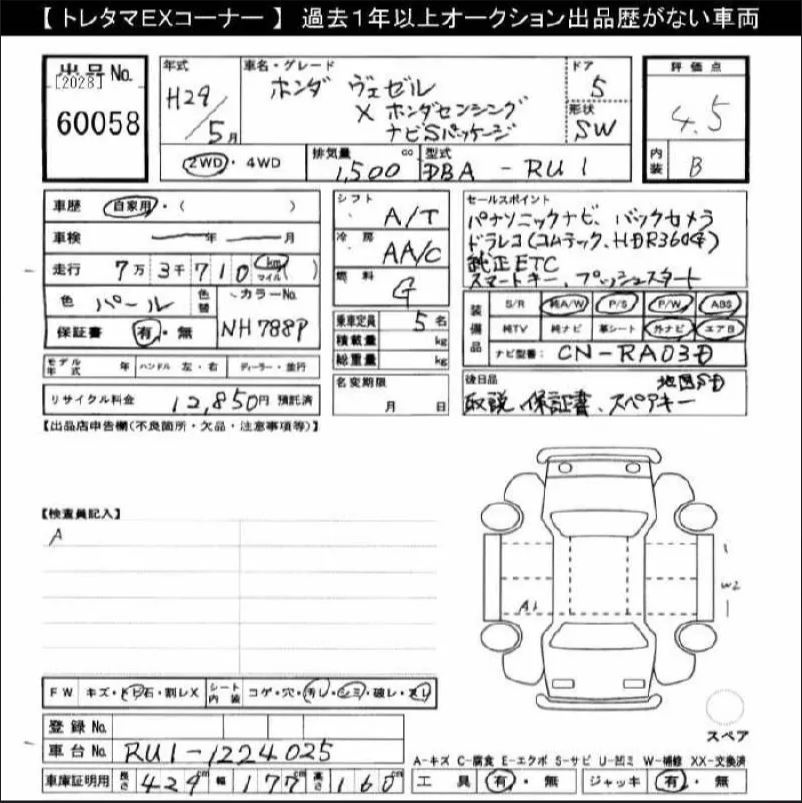 【 トレタマEXコーナー 】 過去１年以上オークション出品歴がない車両
出品No.
[2028]
60058
年式
H29/5月
車名・グレード
ホンダ ヴェゼル
X ホンダセンシング
ナビSパッケージ
ドア
5
形状
SW
評価点
4.5
内装
B
2WD・4WD
排気量
1,500cc
型式
DBA - RU1
車歴 自家用・( )
車検 年 月
走行 7万3千710 km マイル ( )
色 パール 色替
カラーNo.
NH788P
保証書 有・無
モデル年式 年 ハンドル 左・右 ディーラー・並行
リサイクル料金 12,850円 預託済
シフト
A/T
冷房
AA/C
燃料
G
乗車定員 5名
積載量 kg
総重量 kg
名変期限
月 日
セールスポイント
パナソニックナビ、バックカメラ
ドラレコ(コムテック、HDR360G)
純正ETC
スマートキー、プッシュスタート
装備品
S/R 純A/W P/S P/W ABS
純TV 純ナビ 革シート 外ナビ エアB
ナビ型番: CN-RA03D
後日品 地図SD
取説、保証書、スペアキー
【出品店申告欄(不良箇所・欠品・注意事項等)】
【検査員記入】
A
A1
W2
スペア
FW キズ・トビ石・割レX
シート内装 コゲ・穴・汚レ・シミ・破レ・スレ
登録No.
車台No. RU1-1224025
車庫証明用 長さ 429cm 幅 177cm 高さ 160cm
A-キズ C-腐食 E-エクボ S-サビ U-凹ミ W-補修 XX-交換済
工具 有・無 ジャッキ 有・無